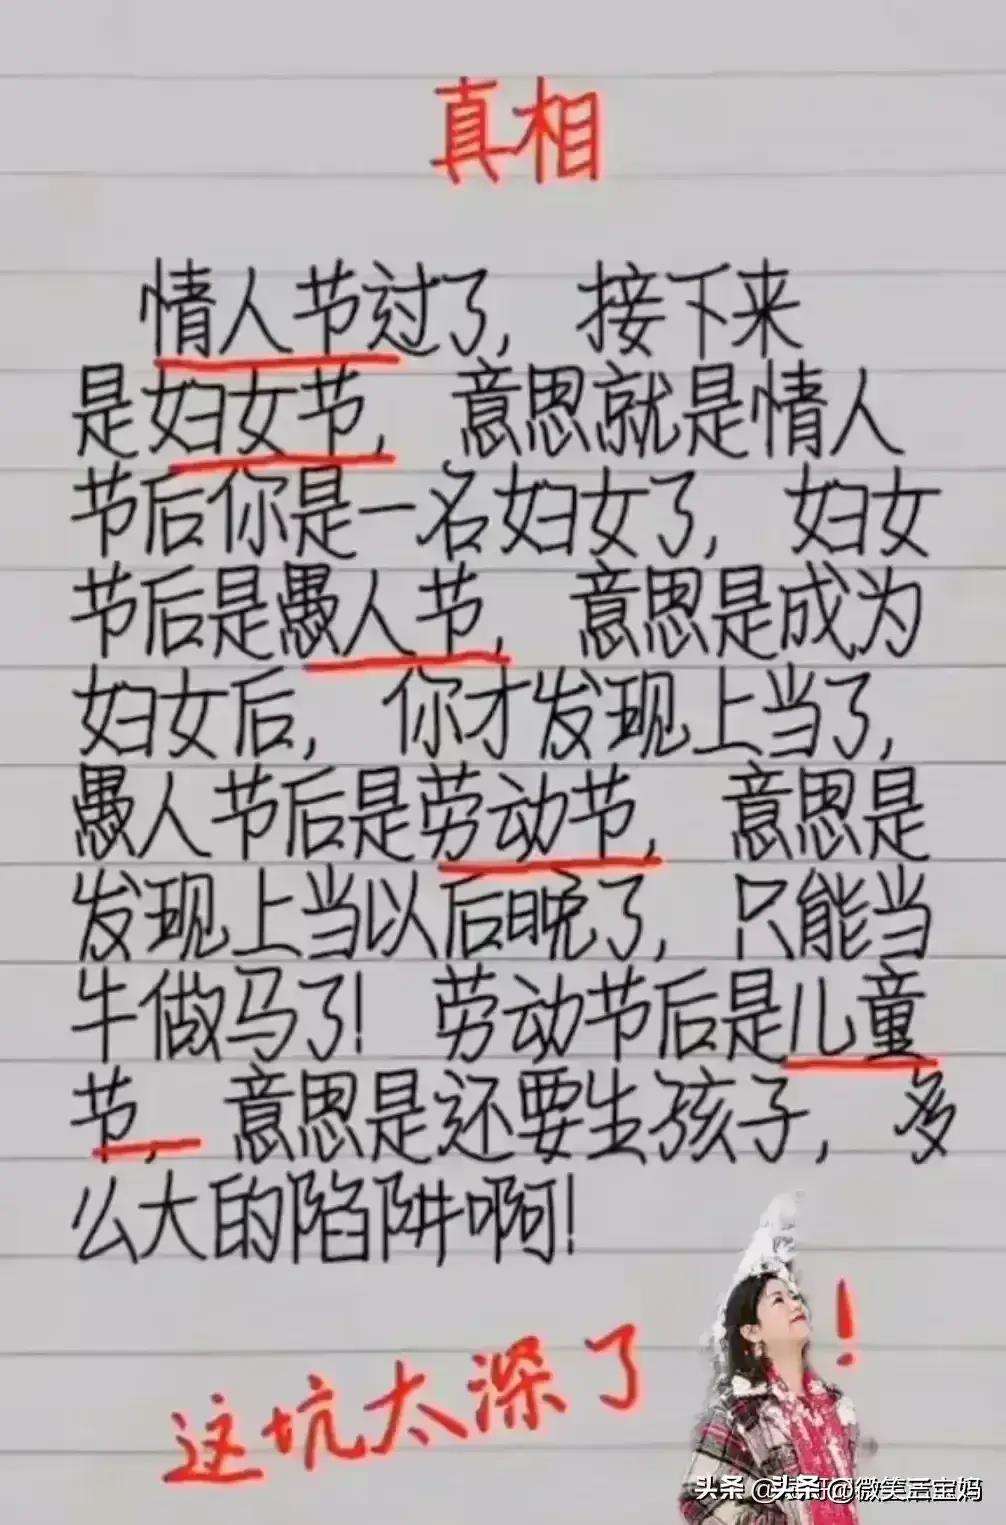 真相
情人节过了，接下来
是妇女节，意思就是情人
节后你是一名妇女了，妇女
节后是愚人节，意思是成为
妇女后，你才发现上当了，
愚人节后是劳动节，意思是
发现上当以后晚了，只能当
牛做马了！劳动节后是儿童
节，意思是还要生孩子，多
么大的陷阱啊！
这坑太深了！
头条 @头条 @微笑三宝妈